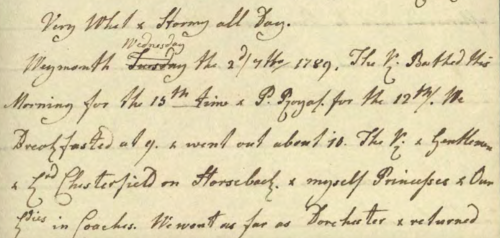 Very Whet & Stormy all Day.
Wednesday
Weymouth Tuesday the 2d/7th/ 1789. The K. Bathed this
Morning for the 13th time & P. Royal. for the 12th/. We
Breakfasted at 9. & went out about 10. The K. & Gentlemen
& Ld Chesterfield on Horseback. & myself Princesses & Our
Ldies in Coaches. We went as far as Dorchester & returned